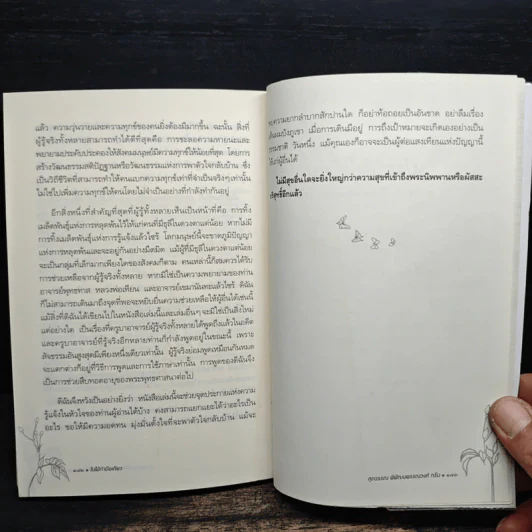 แล้ว ความวุ่นวายและความทุกข์ของคนยิ่งต้องมีมากขึ้น ฉะนั้น สิ่งที่
ผู้รู้จริงทั้งหลายสามารถทำได้ดีที่สุดคือ การชะลอความหายนะและ
พยายามประคับประคองให้สังคมมนุษย์มีความทุกข์ให้น้อยที่สุด โดยการ
สร้างวัฒนธรรมสติปัญฐานหรือวัฒนธรรมแห่งการพาตัวใจกลับบ้าน ซึ่ง
เป็นวิถีชีวิตที่สามารถทำให้คนแบกความทุกข์เท่าที่จำเป็นจริงๆเท่านั้น
ไม่ใช่ไปเพิ่มความทุกข์ให้คนโดยไม่จำเป็นอย่างที่กำลังทำกันอยู่
อีกสิ่งหนึ่งที่สำคัญที่สุดที่ผู้รู้ทั้งหลายเห็นเป็นหน้าที่คือ การทิ้ง
เมล็ดพันธุ์แห่งการหลุดพ้นไว้ให้แก่คนที่มีธุลีในดวงตาแต่น้อย หากไม่มี
การทิ้งเมล็ดพันธุ์แห่งการรู้แจ้งแล้วไซร้ โลกมนุษย์นี้จะขาดภูมิปัญญา
แห่งการหลุดพ้นและจะอยู่กันอย่างมืดมิด แม้ผู้ที่มีธุลีในดวงตาแต่น้อย
จะเป็นกลุ่มที่เล็กมากเพียงใดของสังคมก็ตาม คนเหล่านี้ก็สมควรได้รับ
การช่วยเหลือจากผู้รู้จริงทั้งหลาย หากมิใช่เป็นความพยายามของท่าน
อาจารย์พุทธทาส หลวงพ่อเทียน และอาจารย์เขมานันทะแล้วไซร้ ดิฉัน
ก็ไม่สามารถเดินมาถึงจุดที่พอจะหยิบยื่นความช่วยเหลือให้ผู้อื่นได้เช่นนี้
แม้สิ่งที่ดิฉันได้เขียนไปในหนังสือเล่มนี้และเล่มอื่นๆ จะมิใช่เป็นสิ่งใหม่
แต่อย่างใด เป็นเรื่องที่ครูบาอาจารย์ผู้รู้จริงทั้งหลายได้พูดถึงแล้วในอดีต
และครูบาอาจารย์ที่รู้จริงอีกหลายท่านก็กำลังพูดอยู่ในขณะนี้ เพราะ
สัจธรรมอันสูงสุดมีเพียงหนึ่งเดียวเท่านั้น ผู้รู้จริงย่อมพูดเหมือนกันหมด
จะแตกต่างก็อยู่ที่วิธีการพูดและการใช้ภาษาเท่านั้น การพูดของดิฉันจึง
เป็นการช่วยสืบทอดอายุของพระพุทธศาสนาต่อไป
ดิฉันจึงหวังเป็นอย่างยิ่งว่า หนังสือเล่มนี้จะช่วยจุดประกายแห่งความ
รู้แจ้งในหัวใจของท่านผู้อ่านได้บ้าง คงสามารถแยกแยะได้ว่าอะไรเป็น
อะไร ขอให้มีความอดทน มุ่งมั่นตั้งใจที่จะพาตัวใจกลับบ้าน แม้จะ
ความยากลำบากสักปานใด ก็อย่าท้อถอยเป็นอันขาด อย่าลืมเรื่อง
เมื่อการเดินมีอยู่ การถึงเป้าหมายจะเกิดเองอย่างเป็น
วันหนึ่ง แม้คุณเองก็อาจจะเป็นผู้ต่อแสงเทียนแห่งปัญญานี้
ผู้อื่นได้
ไม่มีสุขอื่นใดจะยิ่งใหญ่กว่าความสุขที่เข้าถึงพระนิพพานหรือผัสสะ
อีกแล้ว